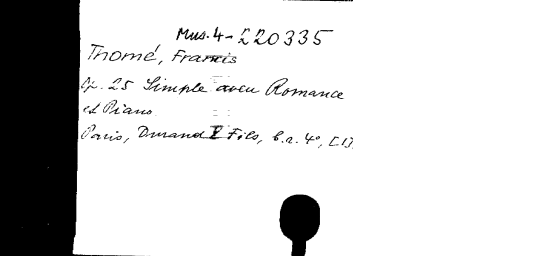 Mus. 4-220335
Thomé, Francis
Op. 25 Simple aveu Romance
et Piano
Paris, Durand & Fils, b.a. 4°, [1].